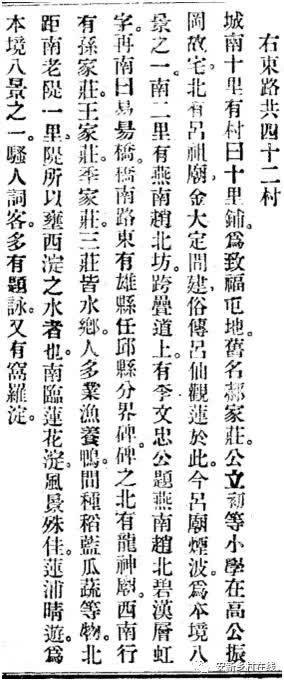 右東路共四十二村
城南十里有村曰十里鋪。爲致福屯地。舊名郝家莊。公立初等小學在高公振
岡故宅。北有呂祖廟。金大定間建。俗傳呂仙觀蓮於此。今呂廟煙波。爲本境八
景之一。南二里有燕南趙北坊。跨疊道上。有李文忠公題燕南趙北碧漢層虹
字。再南曰易昜橋。橋南路東有雄縣任邱縣分界碑。碑之北有龍神廟。西南行
有孫家莊。王家莊。季家莊。三莊皆水鄉。人多業漁養鴨。間種稻藍瓜蔬等物。北
距南老隄一里。隄所以壅西淀之水者也。南臨蓮花淀。風景殊佳。蓮浦晴遊。爲
本境八景之一。騷人詞客多有題詠。又有窩羅淀。
安新乡村在线